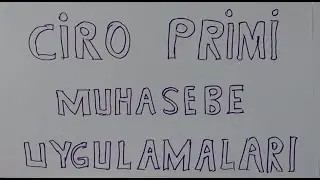 CİRO PRİMİ
MUHASEBE
UYGULAMALARI